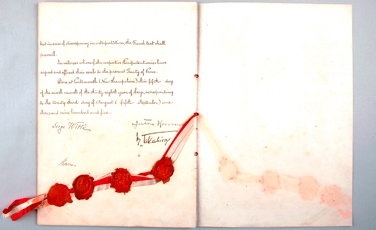 but in case of discrepancy in interpretation, the French text shall
prevail.
In witness whereof the respective Plenipotentiaries have
signed and affixed their seals to the present Treaty of Peace.
Done at Portsmouth (New Hampshire) this fifth day
of the ninth month of the thirty eighth year of Meiji, corresponding
to the twenty third day of August (fifth September) one
thousand nine hundred and five.